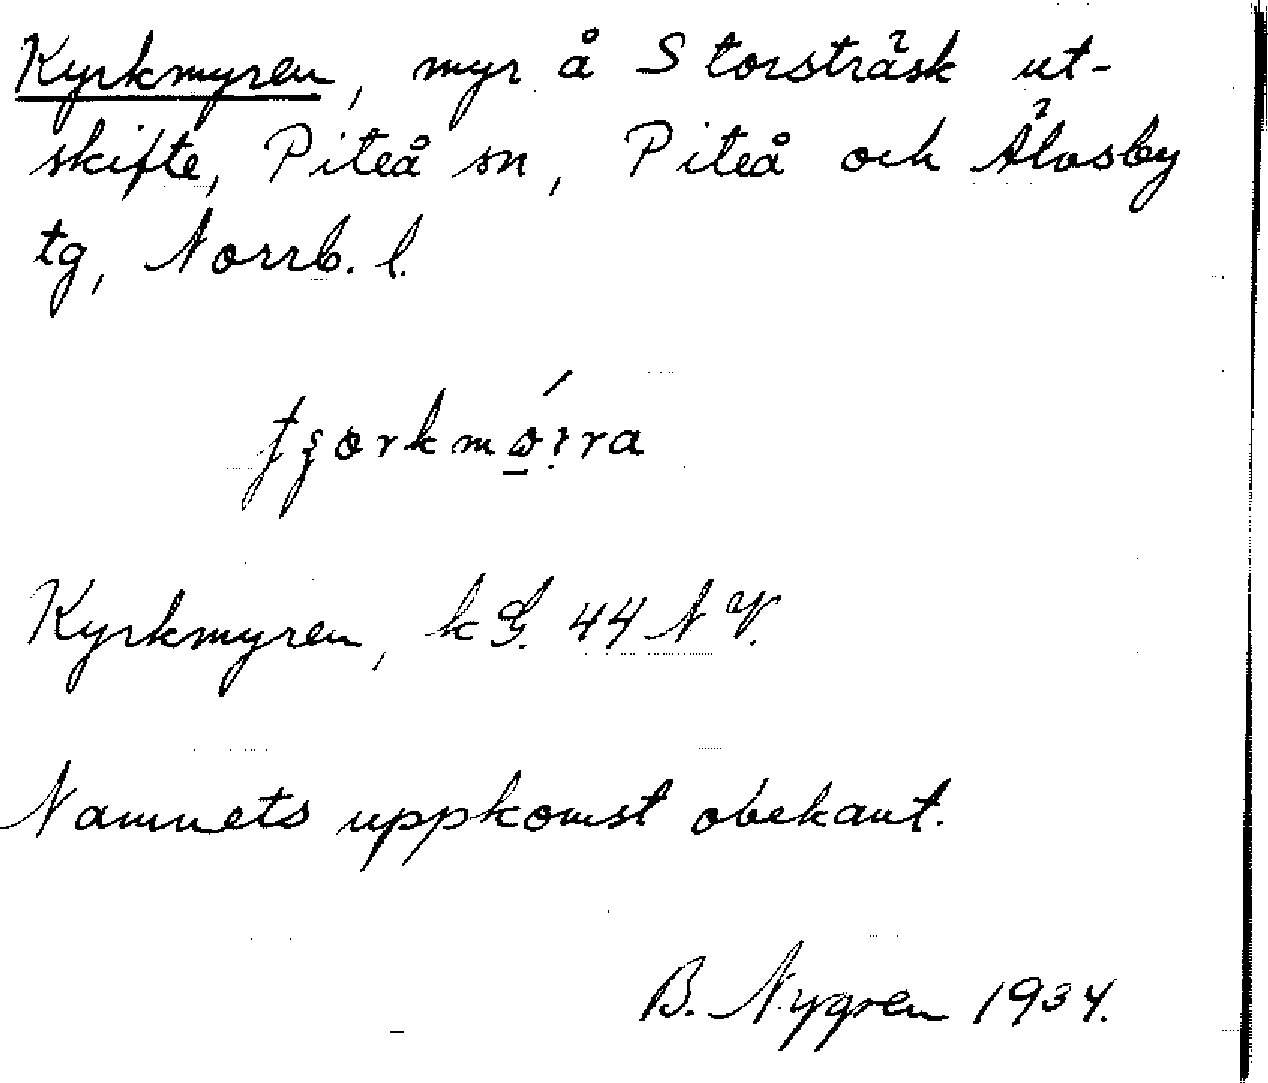 Kyrkmyren, myr å Storsträsk ut-
skifte, Piteå sn, Piteå och Älvsby
tg, Norrb. l.
Kyrkmyren, k G. 44 N V.
Namnets uppkomst obekant.
B. Nygren 1934.